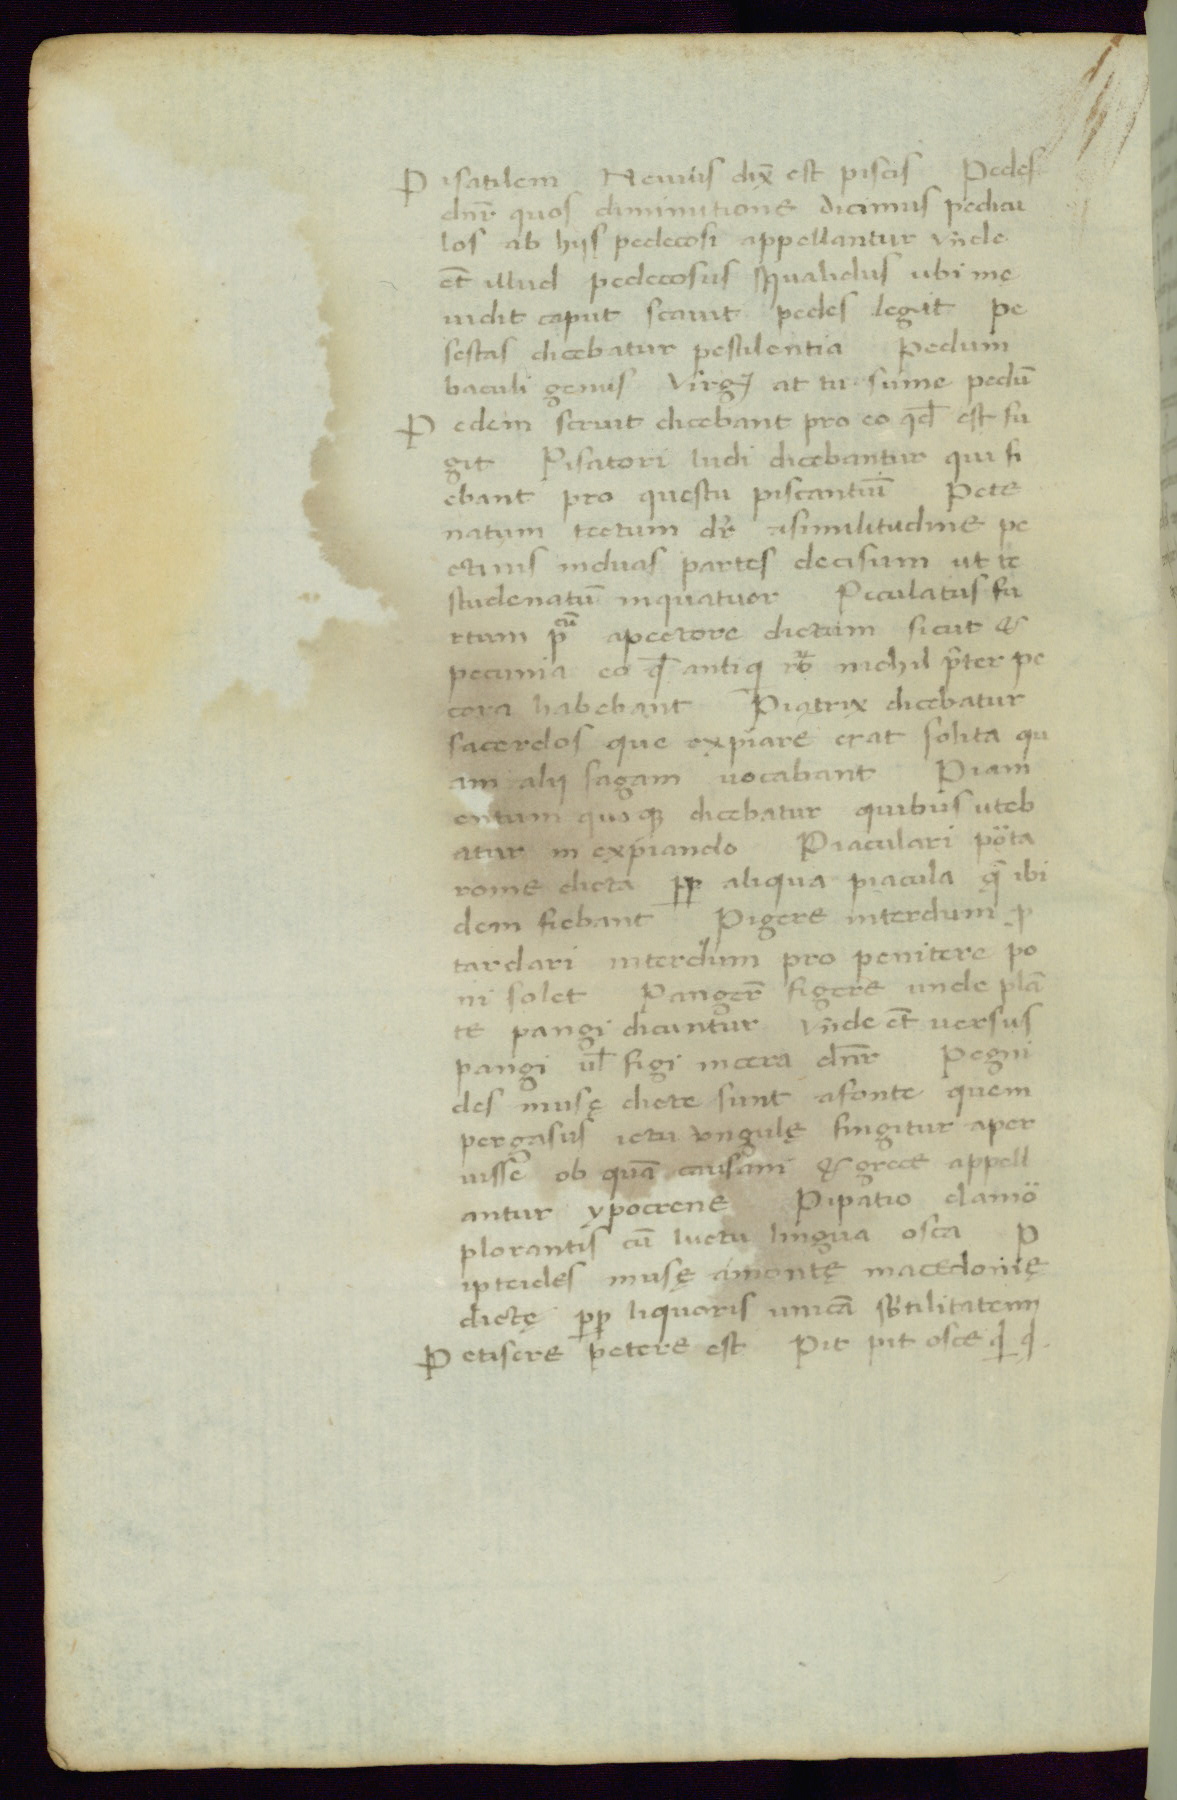 Pisatilem Nevius dix̄ est piscis Pedes
dn̄r quos diminutione dicimus pedicu
los ab hijs pedecosi appellantur vn̄de
et̄ illud pedecosus squalidus ubi me
uidit caput scauit pedes legit pe
sestas dicebatur pestilentia Pedum
baculi genus Virgị at tu sume pedū
Pedem seruit dicebant pro eo qd̄ est fu
git Pisatori ludi dicebantur qui fi
ebant pro questu piscantiū Pete
natum tectum dr̄ asimilitudine pe
ctinis induas partes decisum ut te
studenatū inquatuor Peculatus fu
rtum p̄cū apectore dictum sicut &
pecunia eo q̄ antiq nichil p̄ter pe
cora habebant Piatrix dicebatur
sacerdos que expiare erat solita qu
am alij sagam uocabant Piam
entum quoqꝫ dicebatur quibus uteb
atur in expiando Piaculari pota
rome dicta pp aliqua piacula q̄ ibi
dem fiebant Pigere interdum p
tardari interdum pro penitere po
ni solet Panger̄ figere unde plā
te pangi dicuntur vn̄de et̄ uersus
pangi ul̄ figi incera dn̄r Pegni
des musę dicte sunt afonte quem
pergasus ictu vngulę fingitur aper
uisse ob quā causam & grece appell
antur ypocrene Pipatio clamo
plorantis cū luctu lingua osca P
ipteides musę amontę macedonię
dictę pp liquoris unicā sb̄tilitatem
Petisere petere est Pit pit osce q̄ q